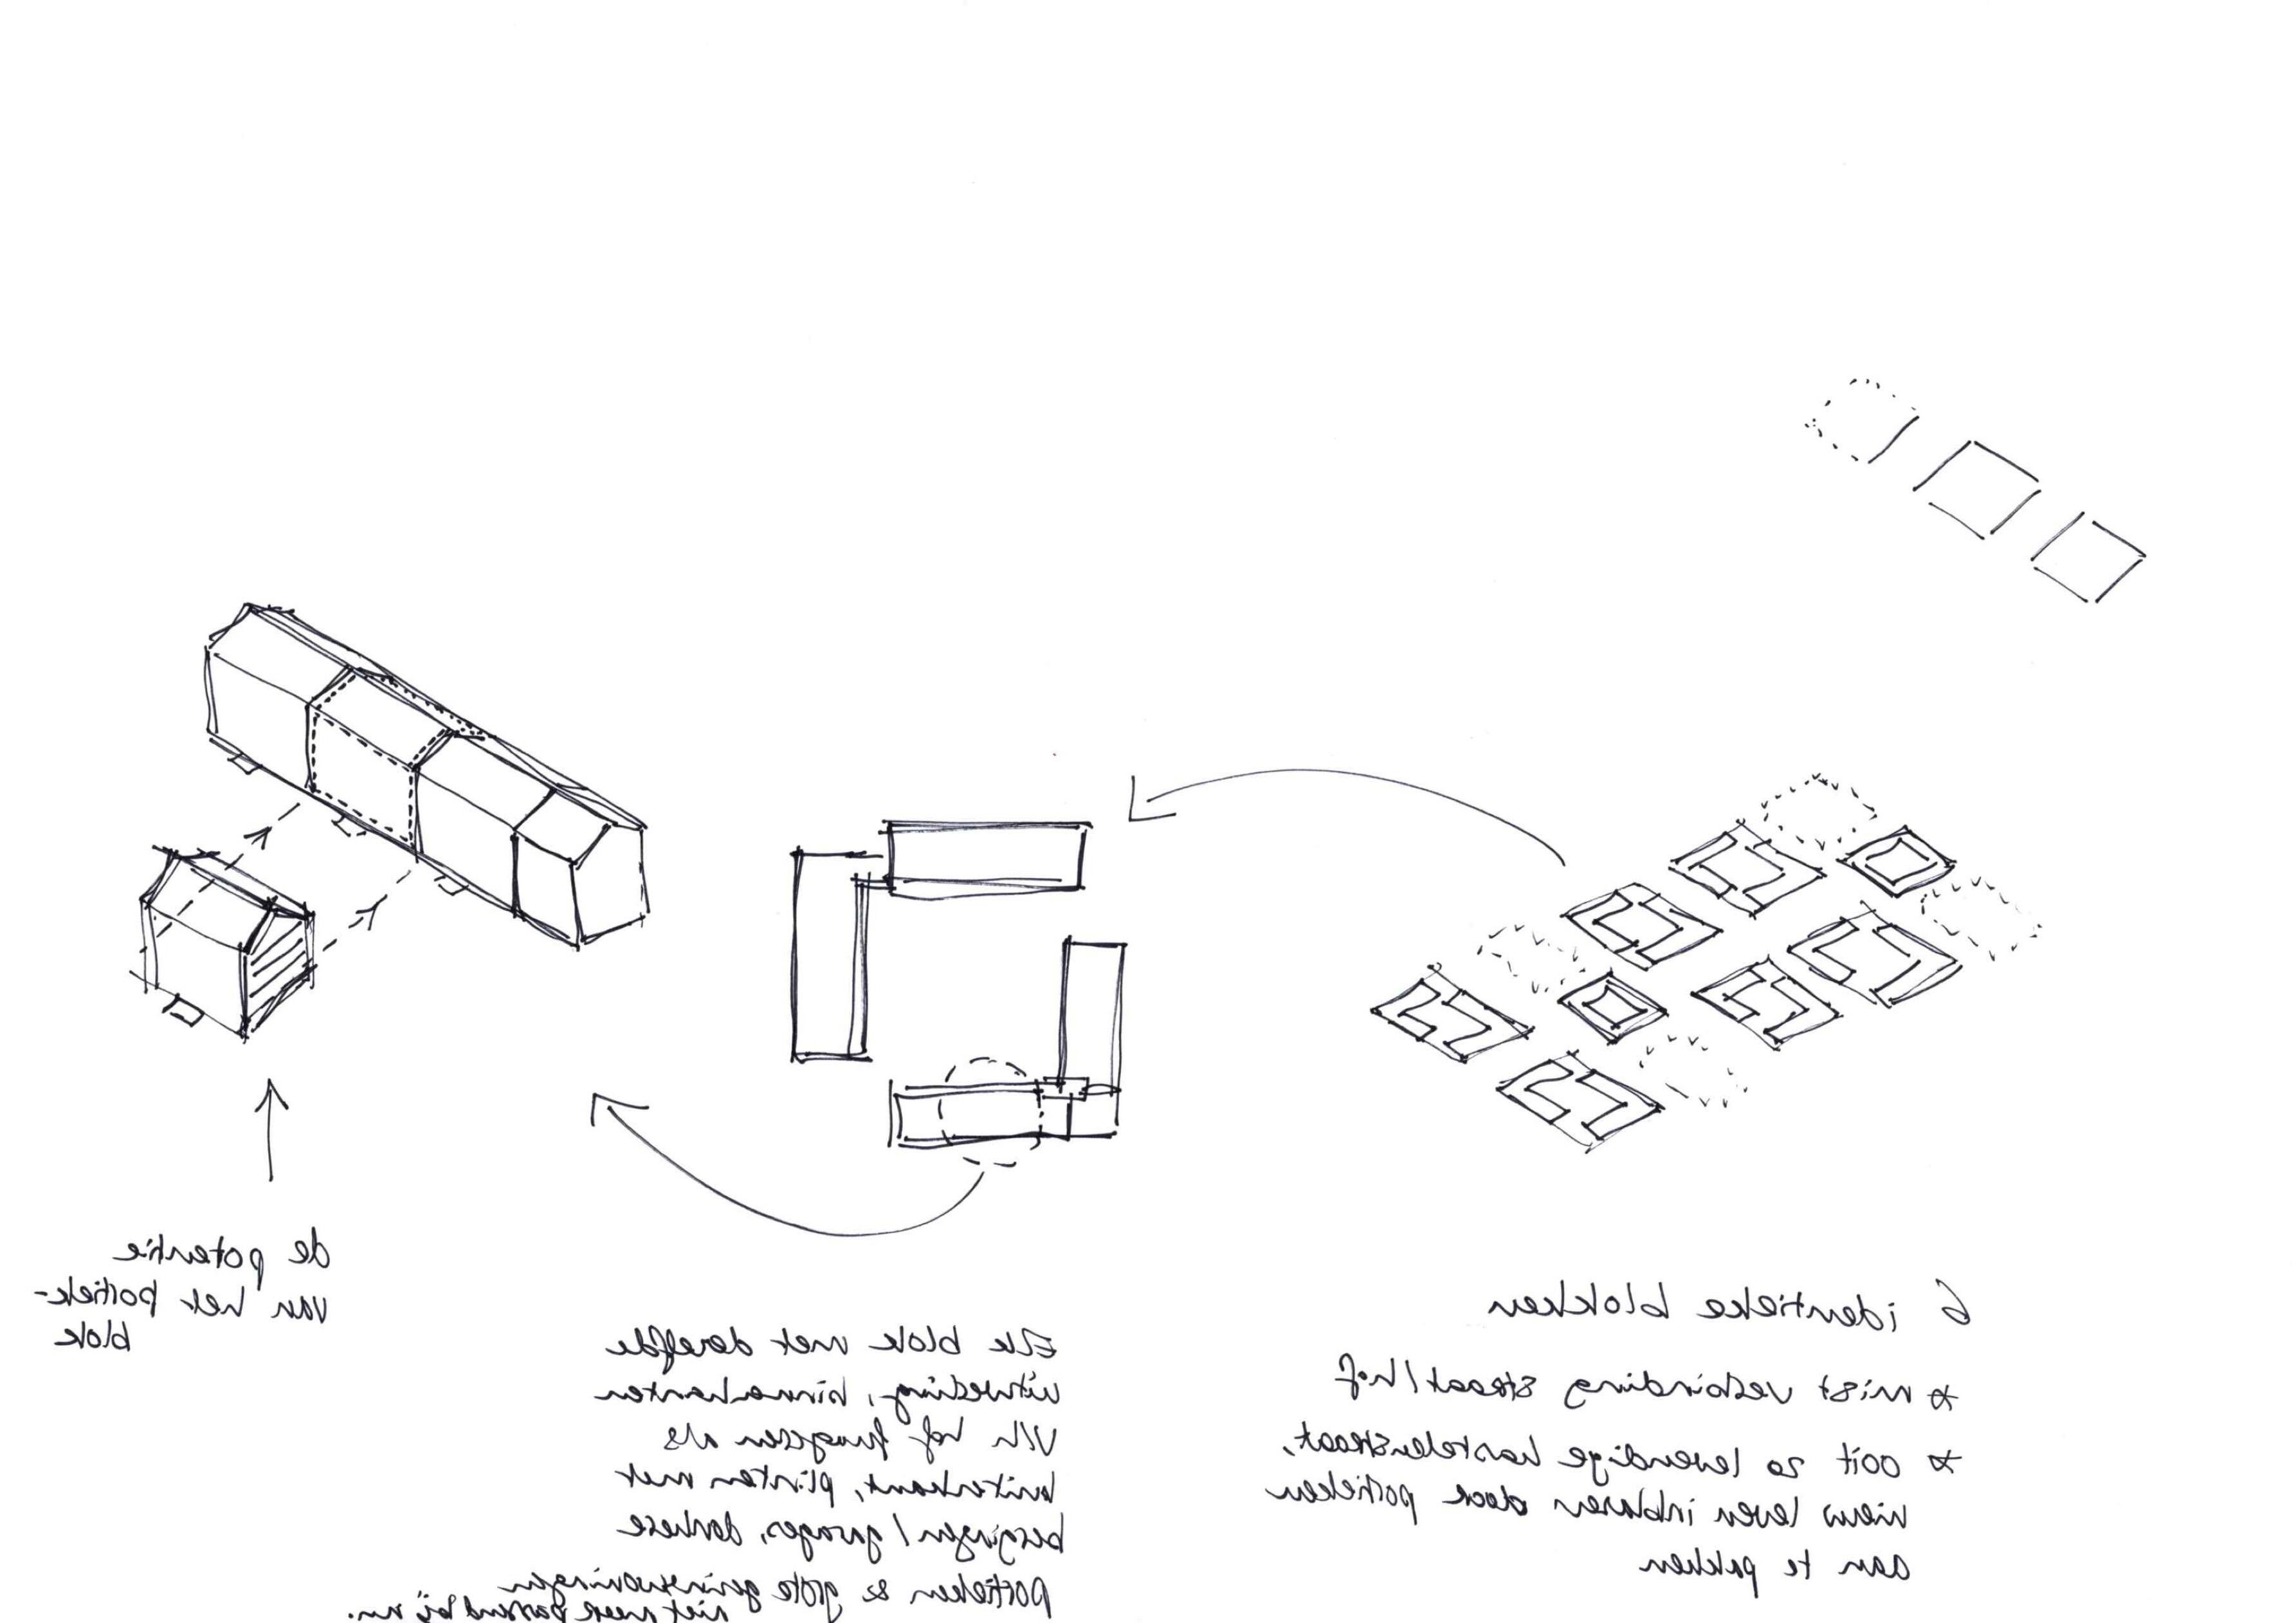 6 identieke blokken
* mist verbinding straat/hof
* ooit zo levendige kastelenstraat,
nieuw leven inblazen door portieken
aan te pakken
Elk blok met dezelfde
uitwerking, binnenkanten
v/h hof fungeren als
buitenkant, plinten met
bergingen / garages, donkere
portieken & grote gezinswoningen
niet meer passend bij nu.
de potentie
van het portiek-
blok